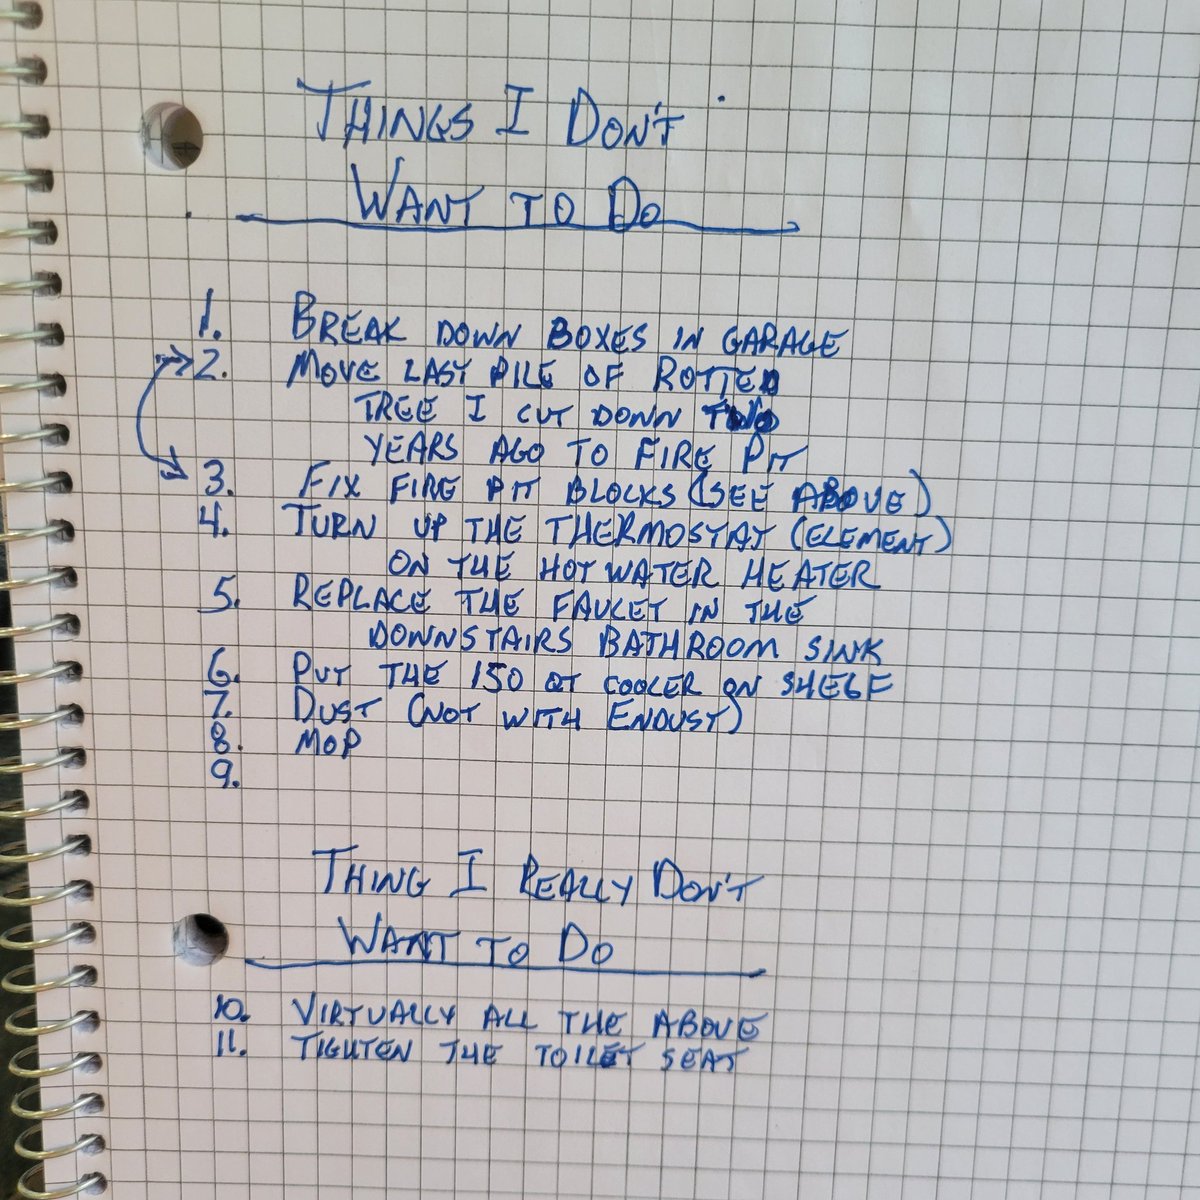 THINGS I DON'T
WANT TO DO
1. BREAK DOWN BOXES IN GARAGE
2. MOVE LAST PILE OF ROTTED
TREE I CUT DOWN TWO
YEARS AGO TO FIRE PIT
3. FIX FIRE PIT BLOCKS (SEE ABOVE)
4. TURN UP THE THERMOSTAT (ELEMENT)
ON THE HOT WATER HEATER
5. REPLACE THE FAUCET IN THE
DOWNSTAIRS BATHROOM SINK
6. PUT THE 150 QT COOLER ON SHELF
7. DUST (NOT WITH ENDUST)
8. MOP
9.
THING I REALLY DON'T
WANT TO DO
10. VIRTUALLY ALL THE ABOVE
11. TIGHTEN THE TOILET SEAT